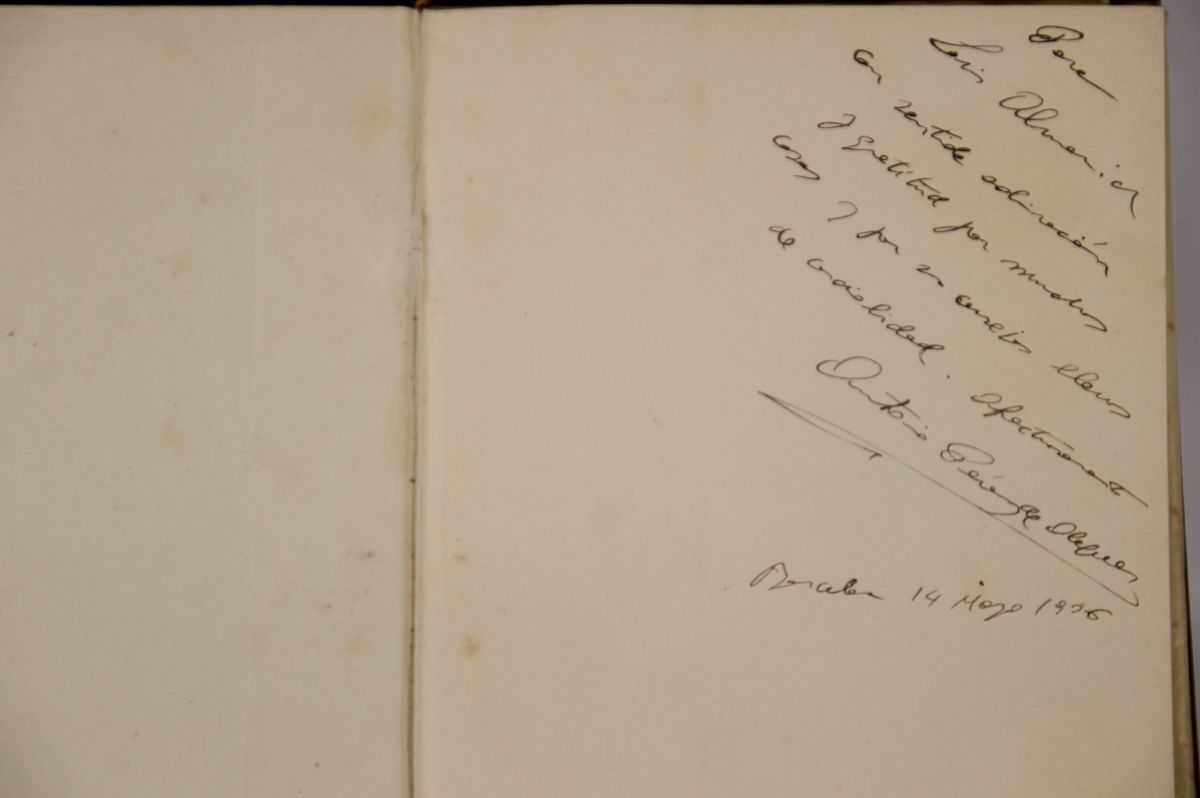 Para
Luis Almerich
con sentida admiración
y gratitud por muchas
cosas y por sus consejos llenos
de cordialidad. Afectuosamente
Antonio Pérez de Olaguer
Barcelona 14 Mayo 1936